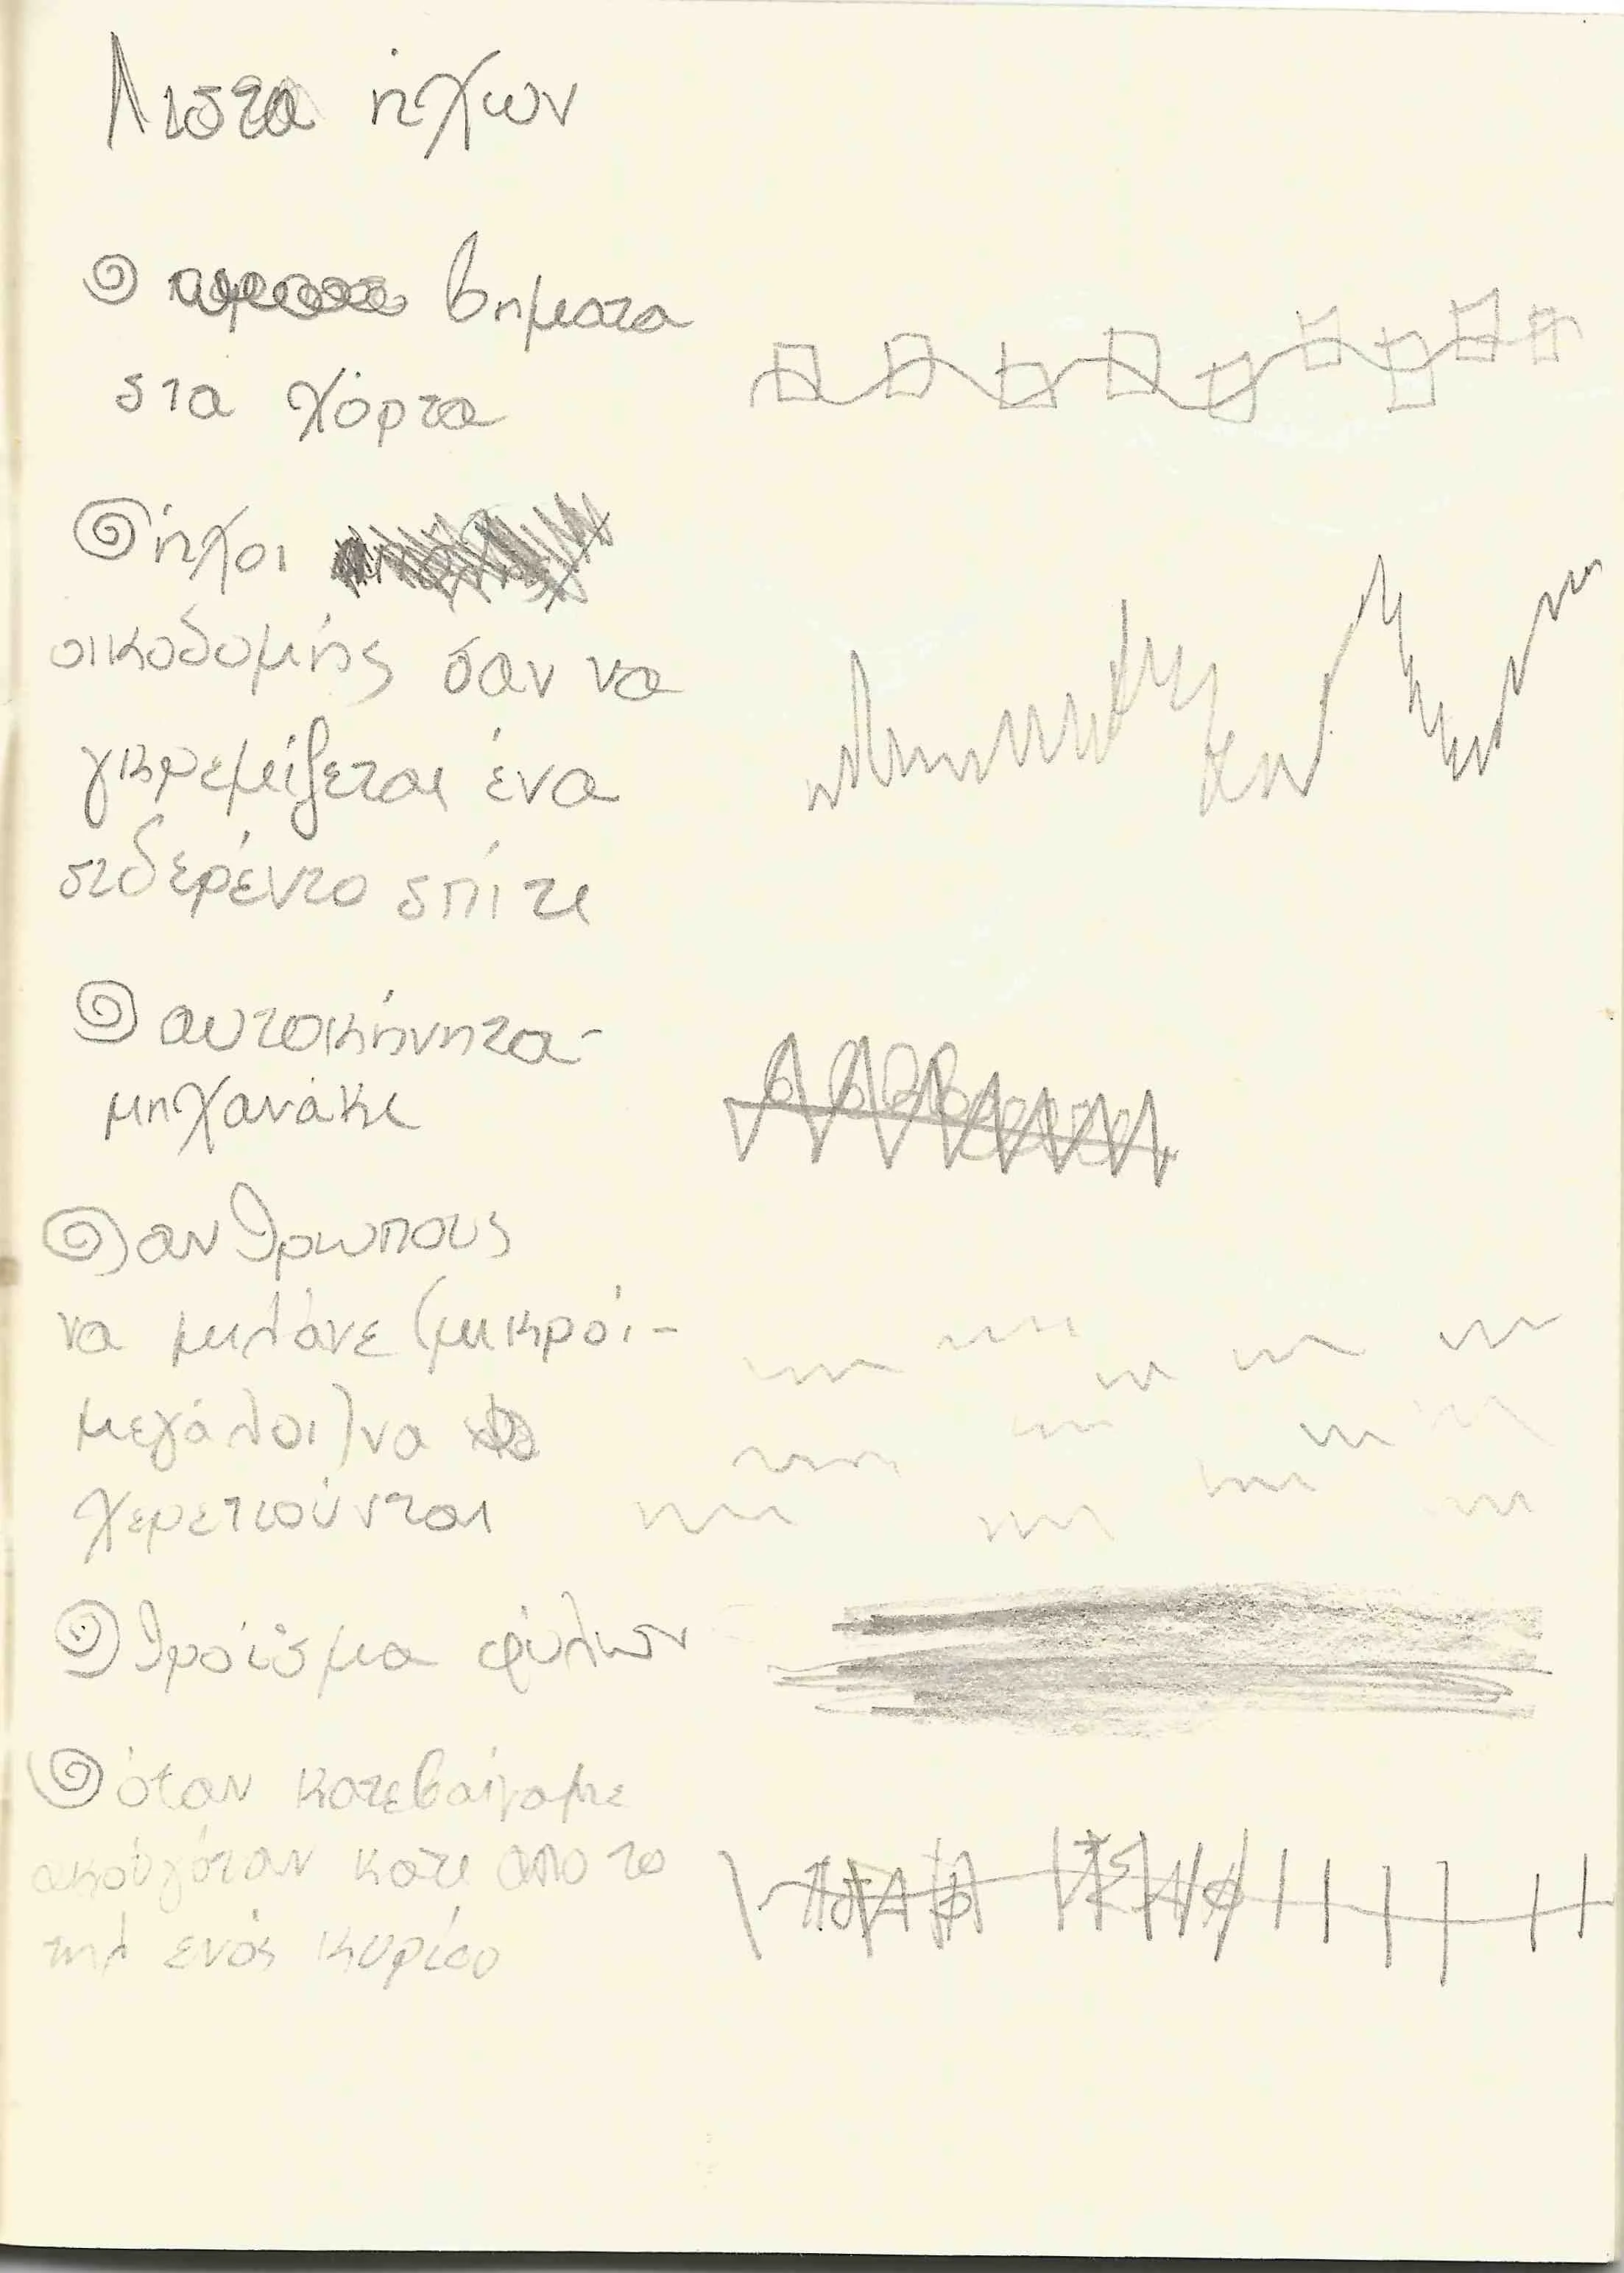 Λιστα ήχων
βηματα
στα χόρτα
ήχοι
οικοδομής σαν να
γκρεμίζεται ένα
σιδερένιο σπίτι
αυτοκήνητα-
μηχανάκι
ανθρωπους
να μιλάνε (μικρόι-
μεγάλοι) να
χερετιούνται
θρόισμα φύλων
όταν κατεβαίναμε
ακουγόταν κατι απο το
τηλ ενός κυρίου